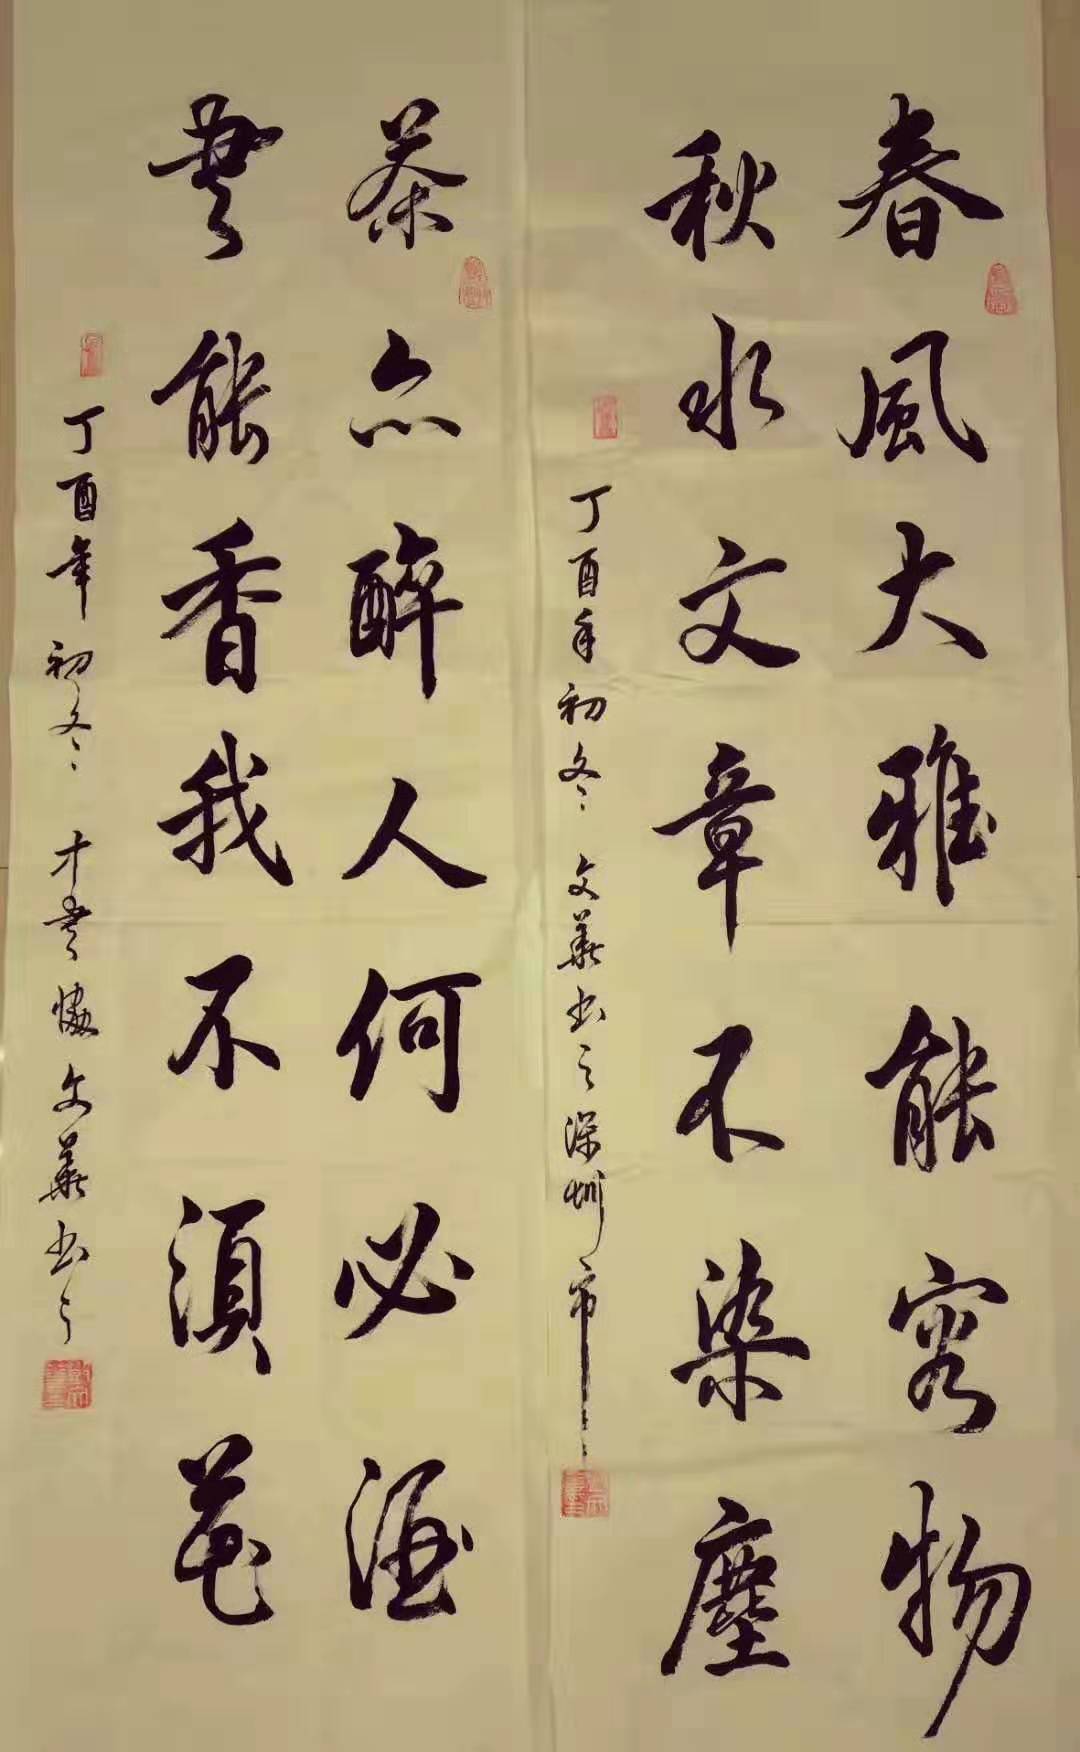 春風大雅能容物
秋水文章不染塵
丁酉年初冬 文華书之深圳市
茶亦醉人何必酒
書能香我不須花
丁酉年初冬 文華书之